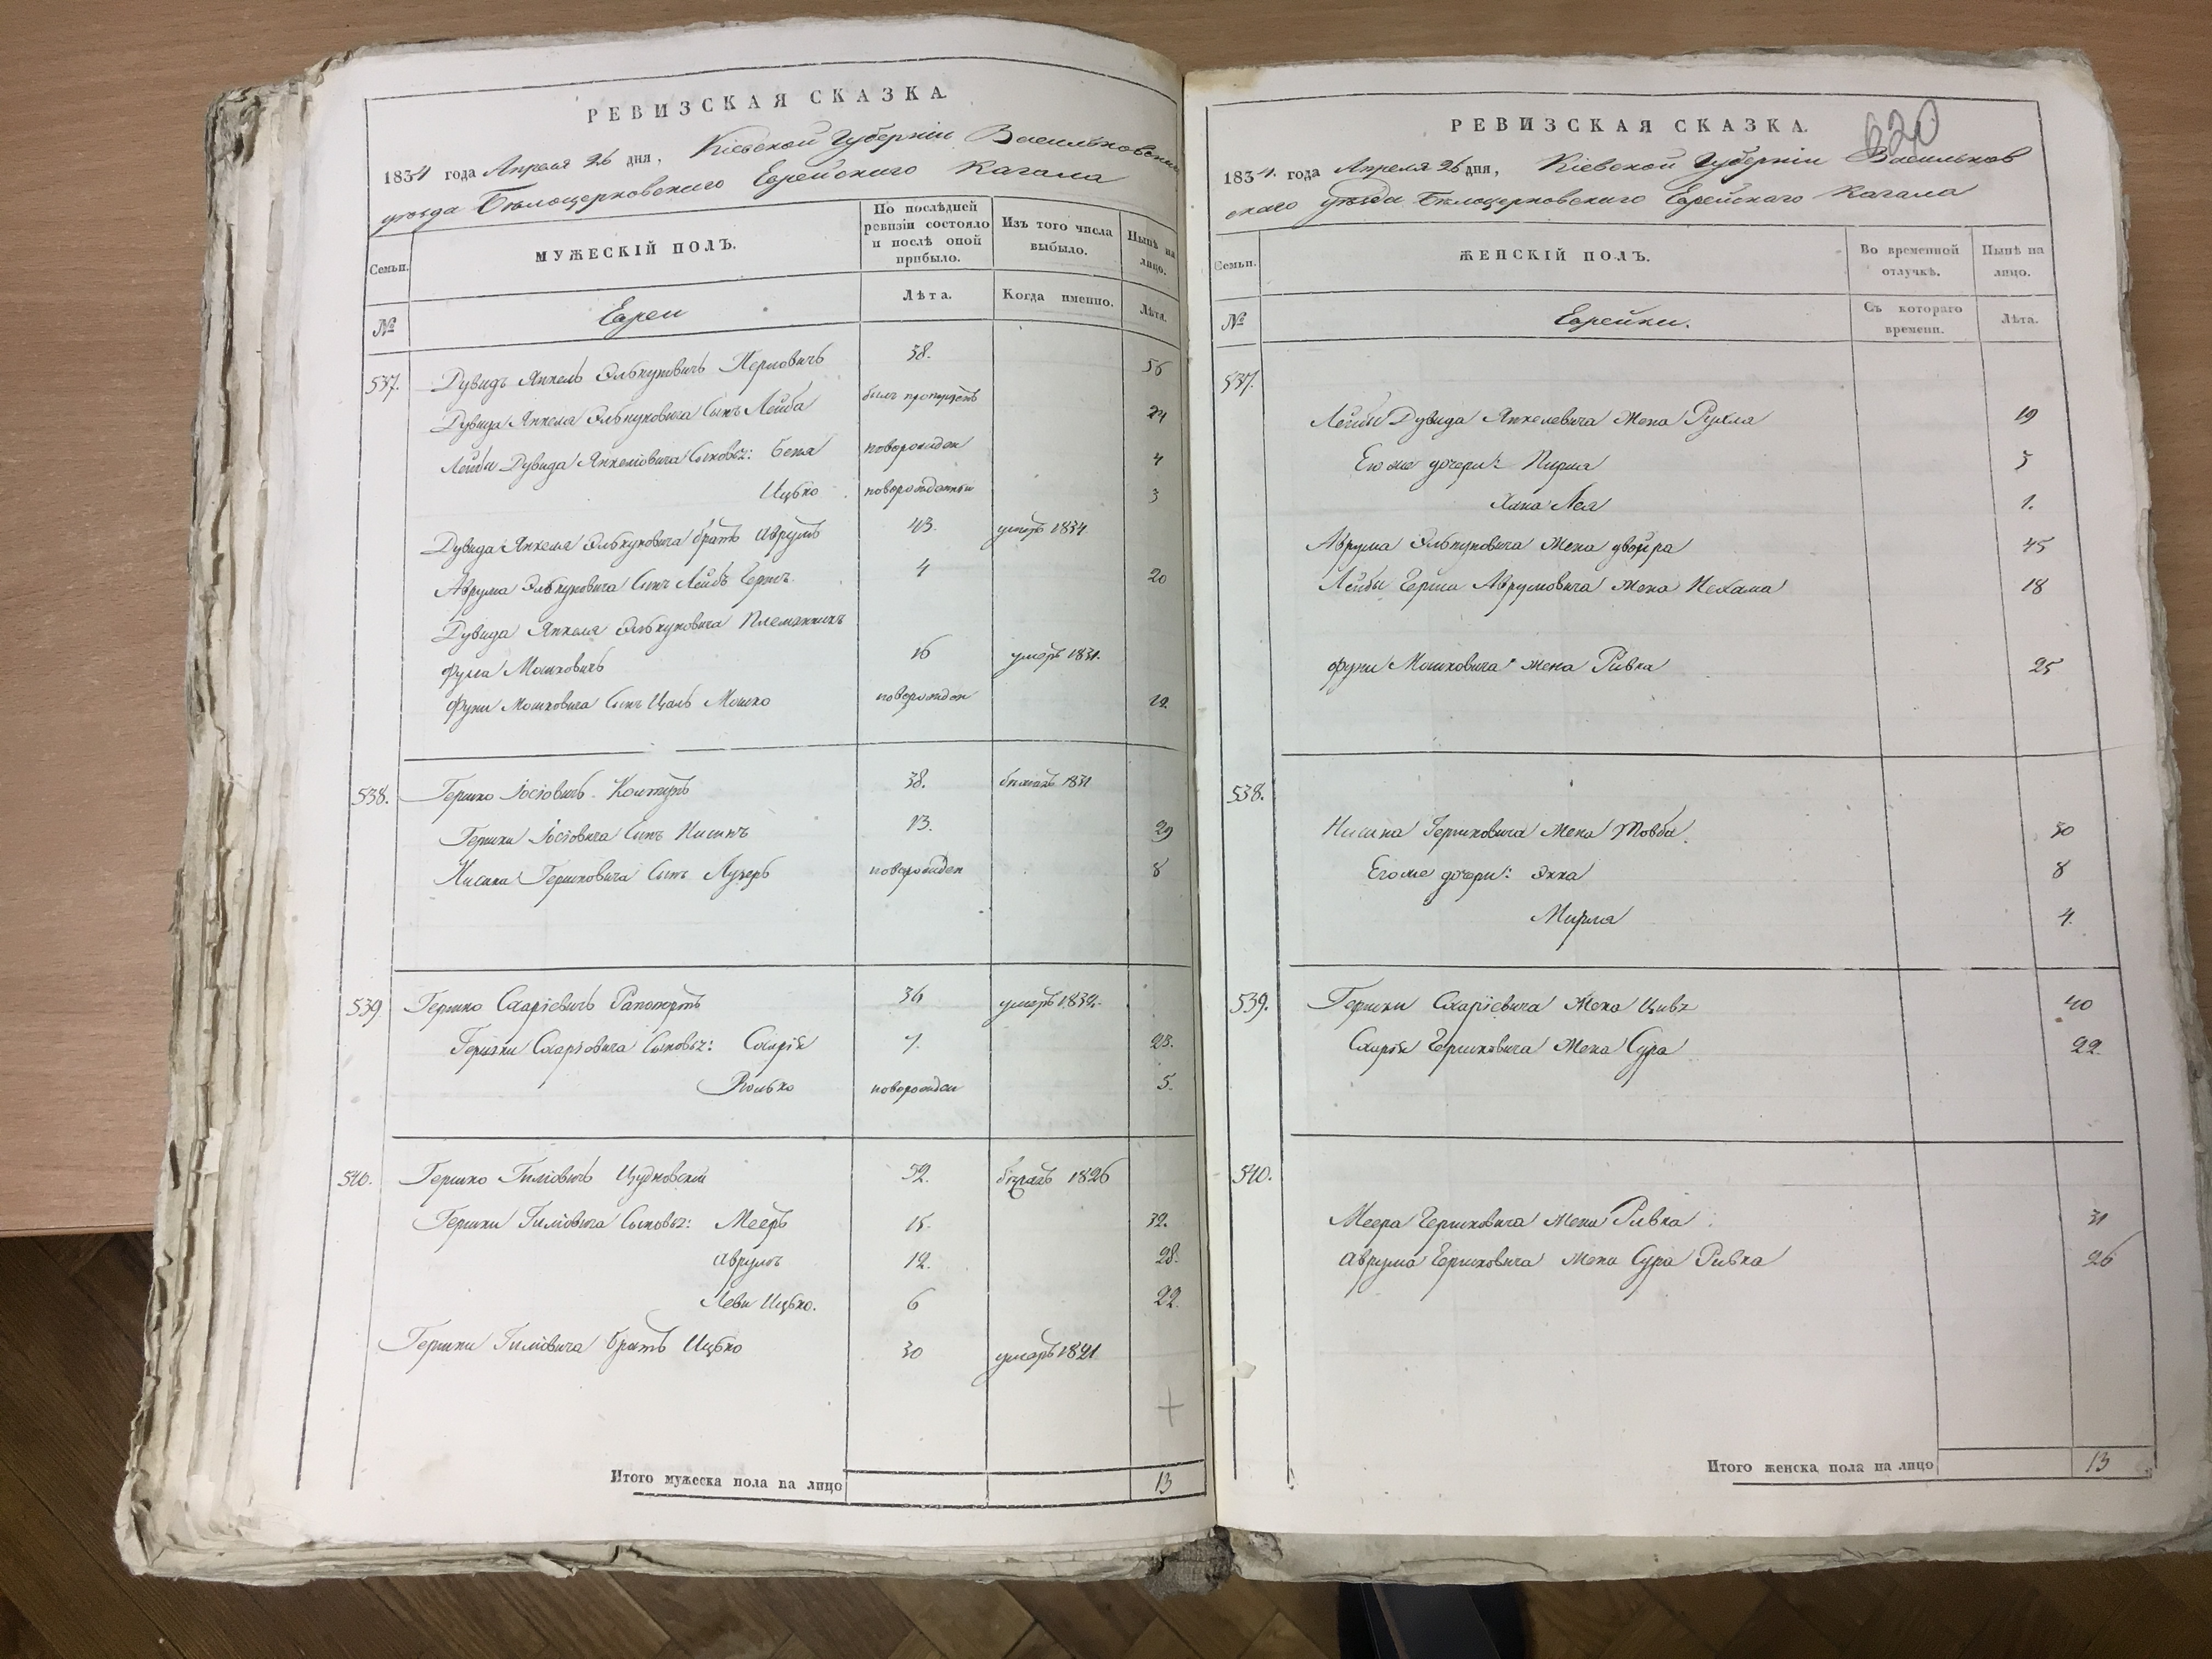 РЕВИЗСКАЯ СКАЗКА.
1834 года Апреля 26 дня, Кіевской Губерніи Васильковскаго
уѣзда Бѣлоцерковскаго Еврейскаго Кагала
Семьи. МУЖЕСКІЙ ПОЛЪ. По послѣдней ревизіи состояло и послѣ оной прибыло. Изъ того числа выбыло. Нынѣ на лицо.
№ Евреи Лѣта. Когда именно. Лѣта.
537. Дувидъ Янкель Эльпуновичъ 38. 56
Дувида Янкеля Эльпуновича Сынъ Лейба былъ пропущенъ 24
Лейбы Дувида Янкелевича Сыновьѧ: Беня новорожден 4
Ицько новорожденный 3
Дувида Янкеля Эльпуновича братъ Аврумъ 43. умеръ 1834
Аврума Эльпуновича Сынъ Лейбъ Гершъ 4 20
Дувида Янкеля Эльпуновича Племянникъ
Мошковичъ 16 умеръ 1831.
Мошковича Сынъ Цаль Мошко новорожден 12.
538. Гершко Іосіовичъ 38. 1831
Гершки Іосіовича Сынъ Нисинъ 13. 29
Нисина Гершковича Сынъ Лузеръ новорожден 8
539. Гершко Схаріевичъ Рапопортъ 36 умеръ 1832.
Гершки Схаріовича Сыновьѧ: Схарія 7. 23.
Волько новорожден 5.
540. Гершко 52. 1826
Гершки Сыновьѧ: Мееръ 15. 32.
Аврумъ 12. 28.
Леви Ицько. 6 22.
Гершки братъ Ицько 30 умеръ 1821
Итого мужеска пола на лицо 13
620
РЕВИЗСКАЯ СКАЗКА.
1834. года Апреля 26 дня, Кіевской Губерніи Васильков
скаго уѣзда Бѣлоцерковскаго Еврейскаго Кагала
Семьи. ЖЕНСКІЙ ПОЛЪ. Во временной отлучкѣ. Нынѣ на лицо.
№ Еврейки. Съ котораго времени. Лѣта.
537.
Лейбы Дувида Янкелевича Жена Рухля 19
Его же дочери: Пирля 3
Хана Лея 1.
Аврума Эльпуновича Жена Двойра 45
Лейбы Герша Аврумовича Жена Нехама 18
Мошковича жена Ривка 25
538.
Нисина Гершковича Жена Товба. 30
Его же дочери: Энна 8
Мирля 4.
539. Гершки Схаріевича Жена Цивѧ 40
Схарія Гершковича Жена Сура 22.
540.
Меера Гершковича Жена Ривка 31
Аврума Гершковича Жена Сура Ривка 26
Итого женска пола на лицо 13